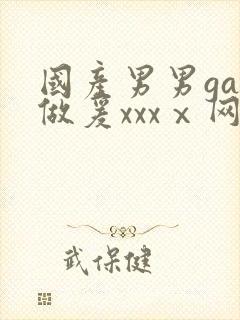 國産男男ga
做爰xxxⅹ网
武保健